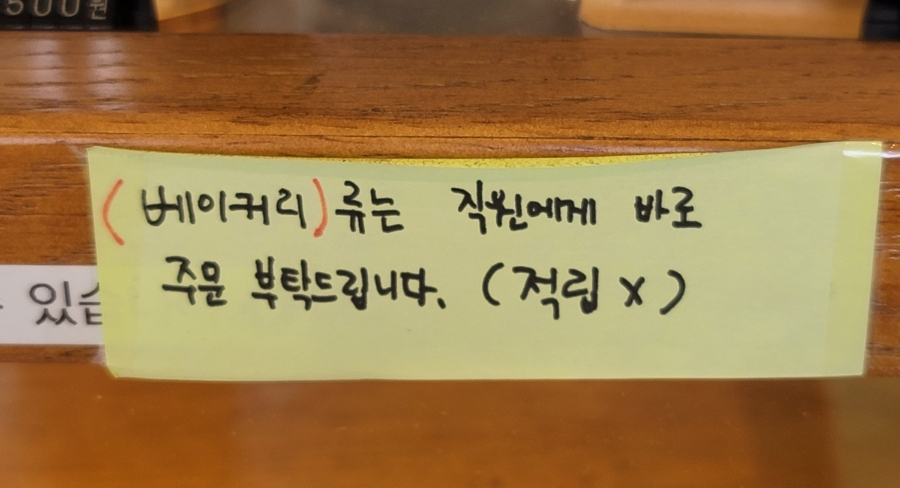 500원
(베이커리)류는 직원에게 바로
있습
주문 부탁드립니다. (적립 X)